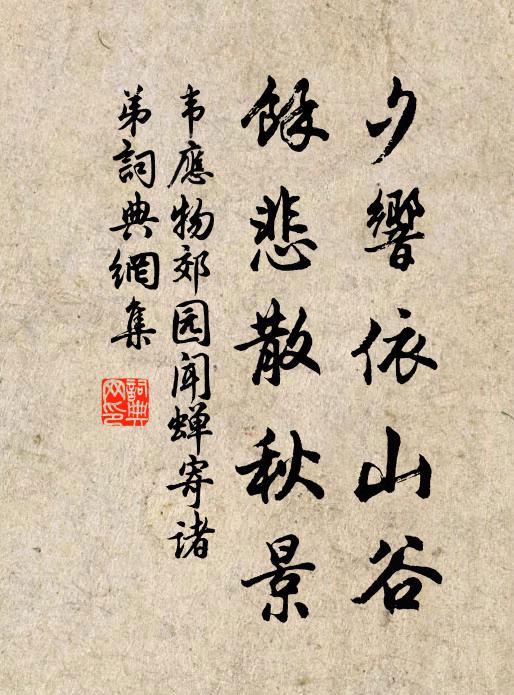 夕響依山谷
餘悲散秋景
韦應物郊园闻蝉寄诸
弟詞典網集
詞典
网印